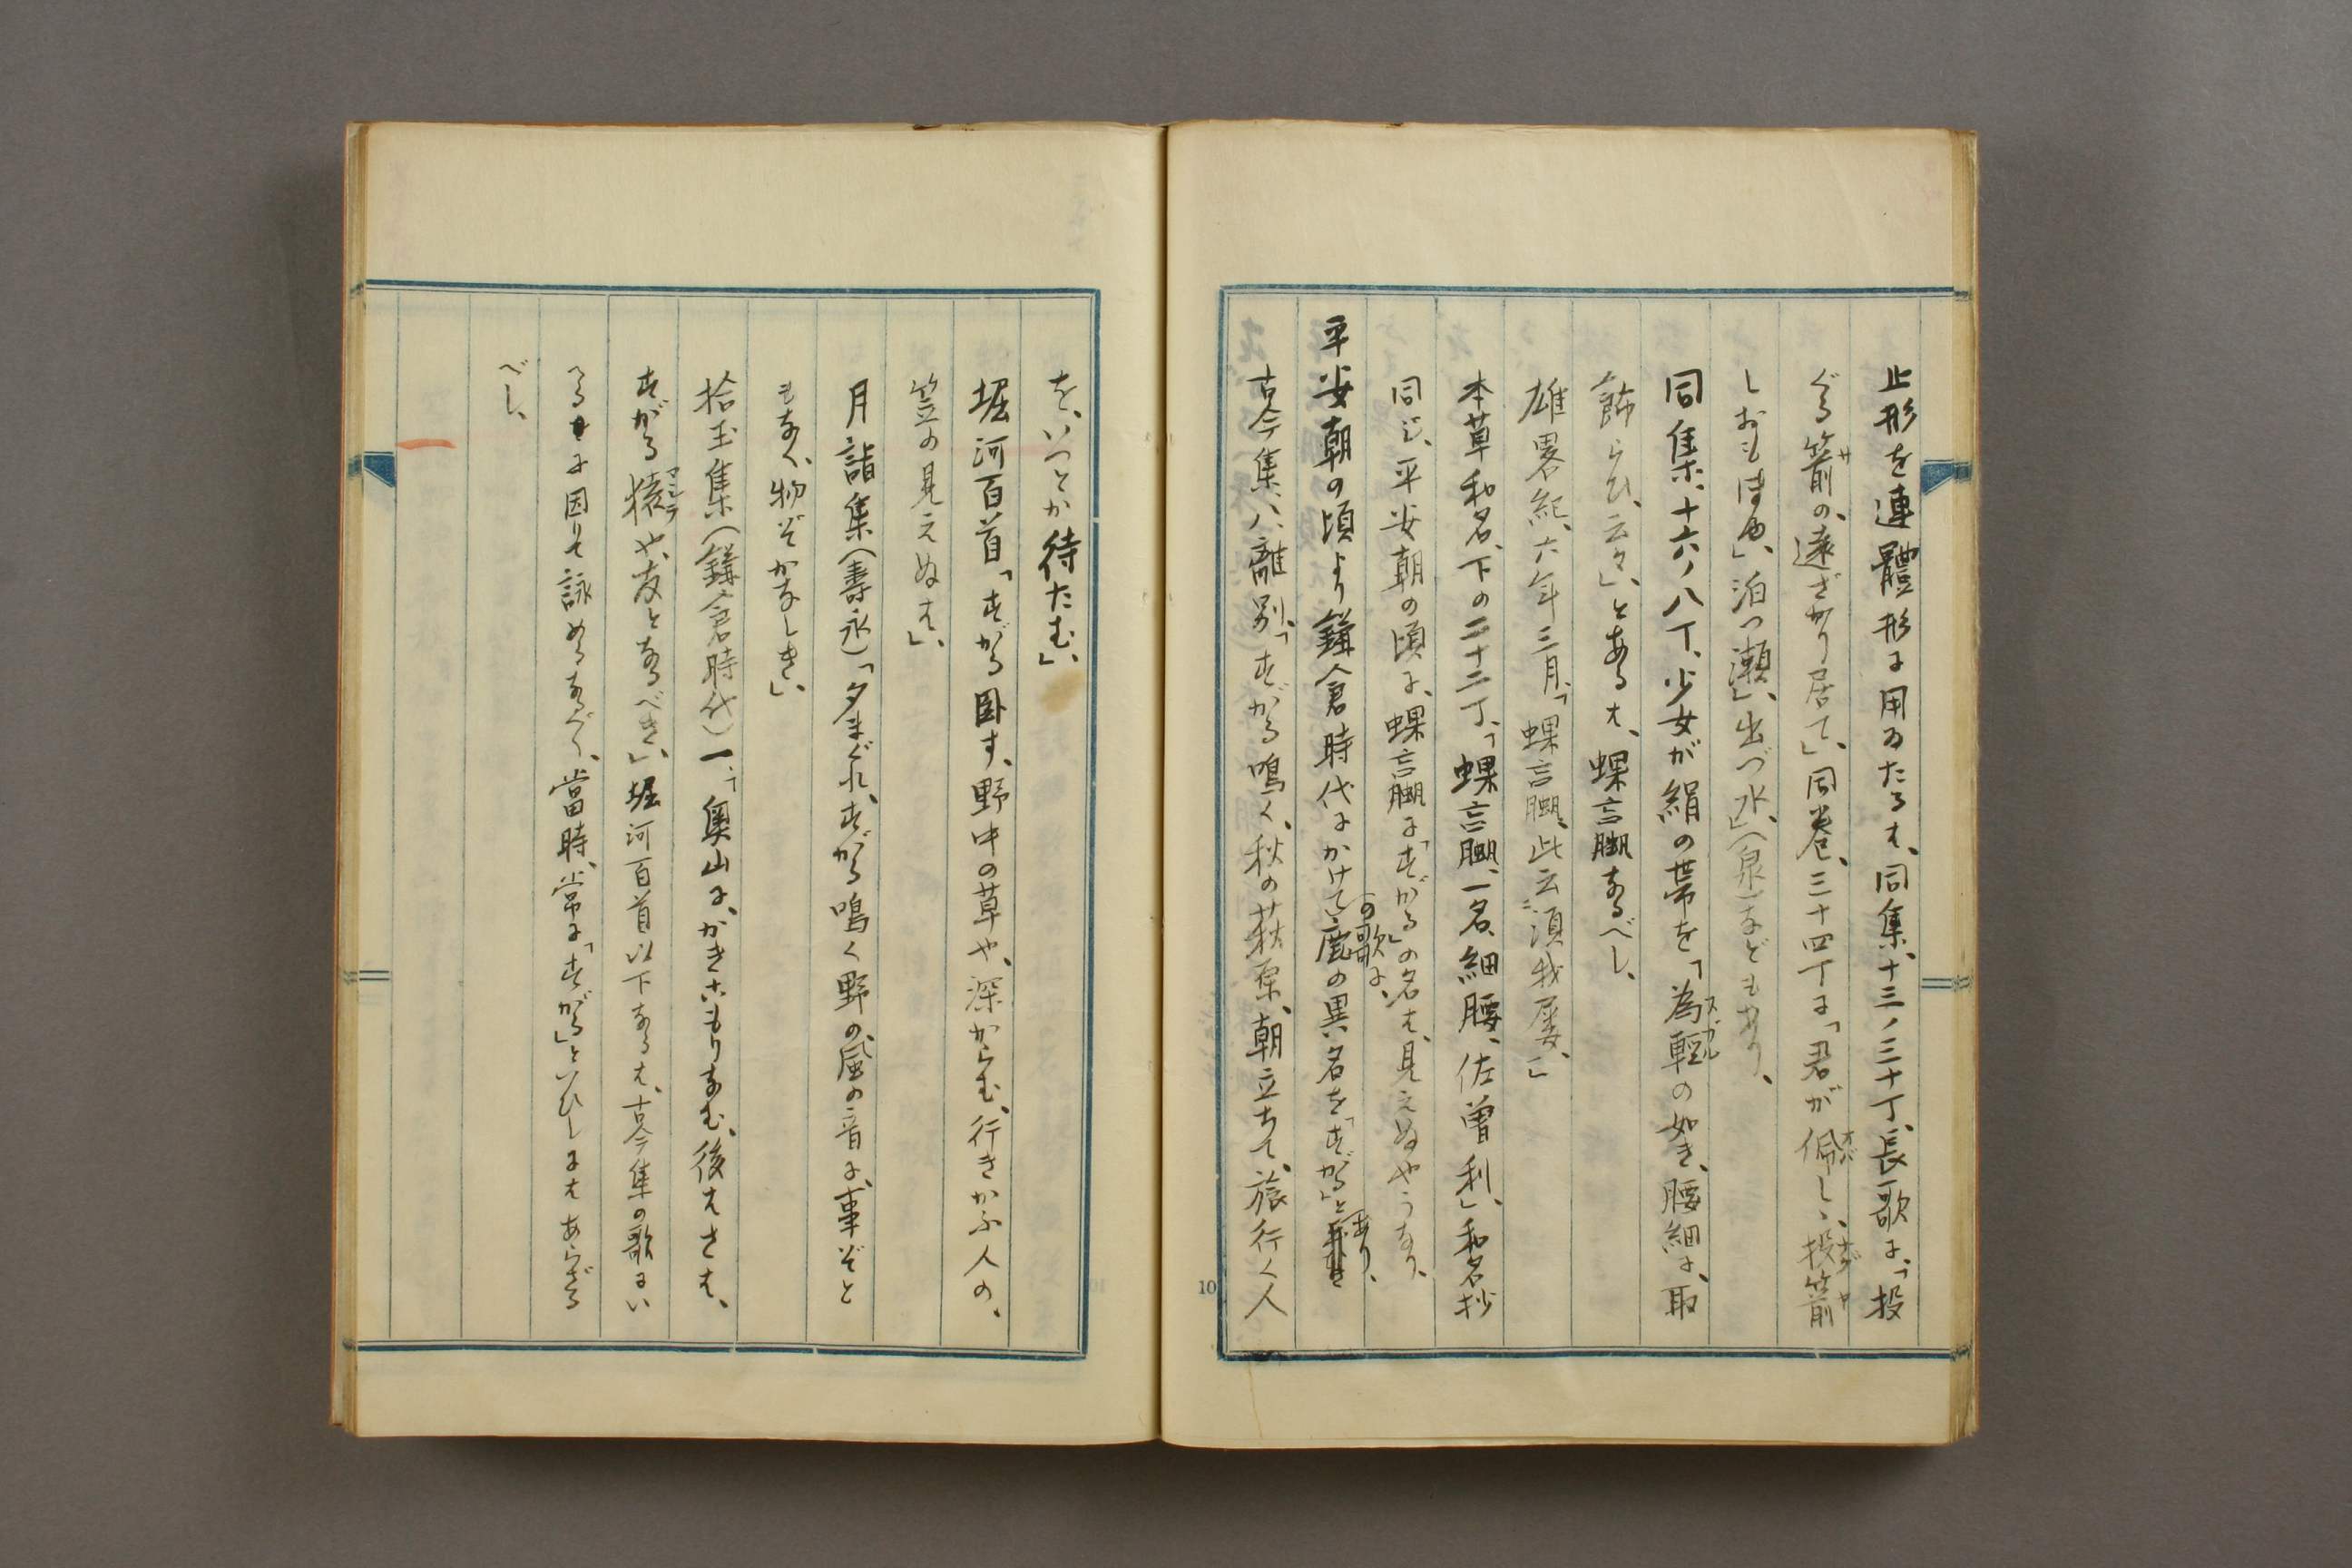 止形を連體形に用ゐたるは、同集、十三ノ三十丁、長歌に、「投
ぐる箭の、遠ざかり居て」、同巻、三十四丁に「君が佩し、投箭
しおもほゆ」、泊つ瀬」、出づ水」(泉)などもあり、
同集、十六ノ八丁、少女が絹の帯を「為軽の如き、腰細に、取
飾らひ、云々」、とあるは、蜾言腳なるべし、
雄畧紀、六年三月、「蜾言腳、此云須我屢、」
本草和名、下の二十二丁、「蜾言腳、一名、細腰、佐曽利」、和名抄
同じ、平安朝の頃に、蜾言腳に「すがる」の名は、見えぬやうなり、
平安朝の頃より鎌倉時代にかけての歌に、鹿の異名を「すがる」とあり、
古今集、八、離別、「すがる鳴く、秋の萩原、朝立ちて、旅行く人
を、いつとか待たむ」、
堀河百首「すがる臥す、野中の草や、深からむ、行きかふ人の、
笠の見えぬは」、
月詣集(壽永)「夕まぐれ、すがる鳴く野の、風の音に、事ぞと
もなく、物ぞかなしき」、
拾玉集(鎌倉時代)一、「奥山に、かきこもりなむ、後はさは、
すがる猿や、友となるべき」、堀河百首以下なるは、古今集の歌にい
へるに因りて詠めるなるべく、當時、常に「すがる」といひしにはあらざる
べし、
10